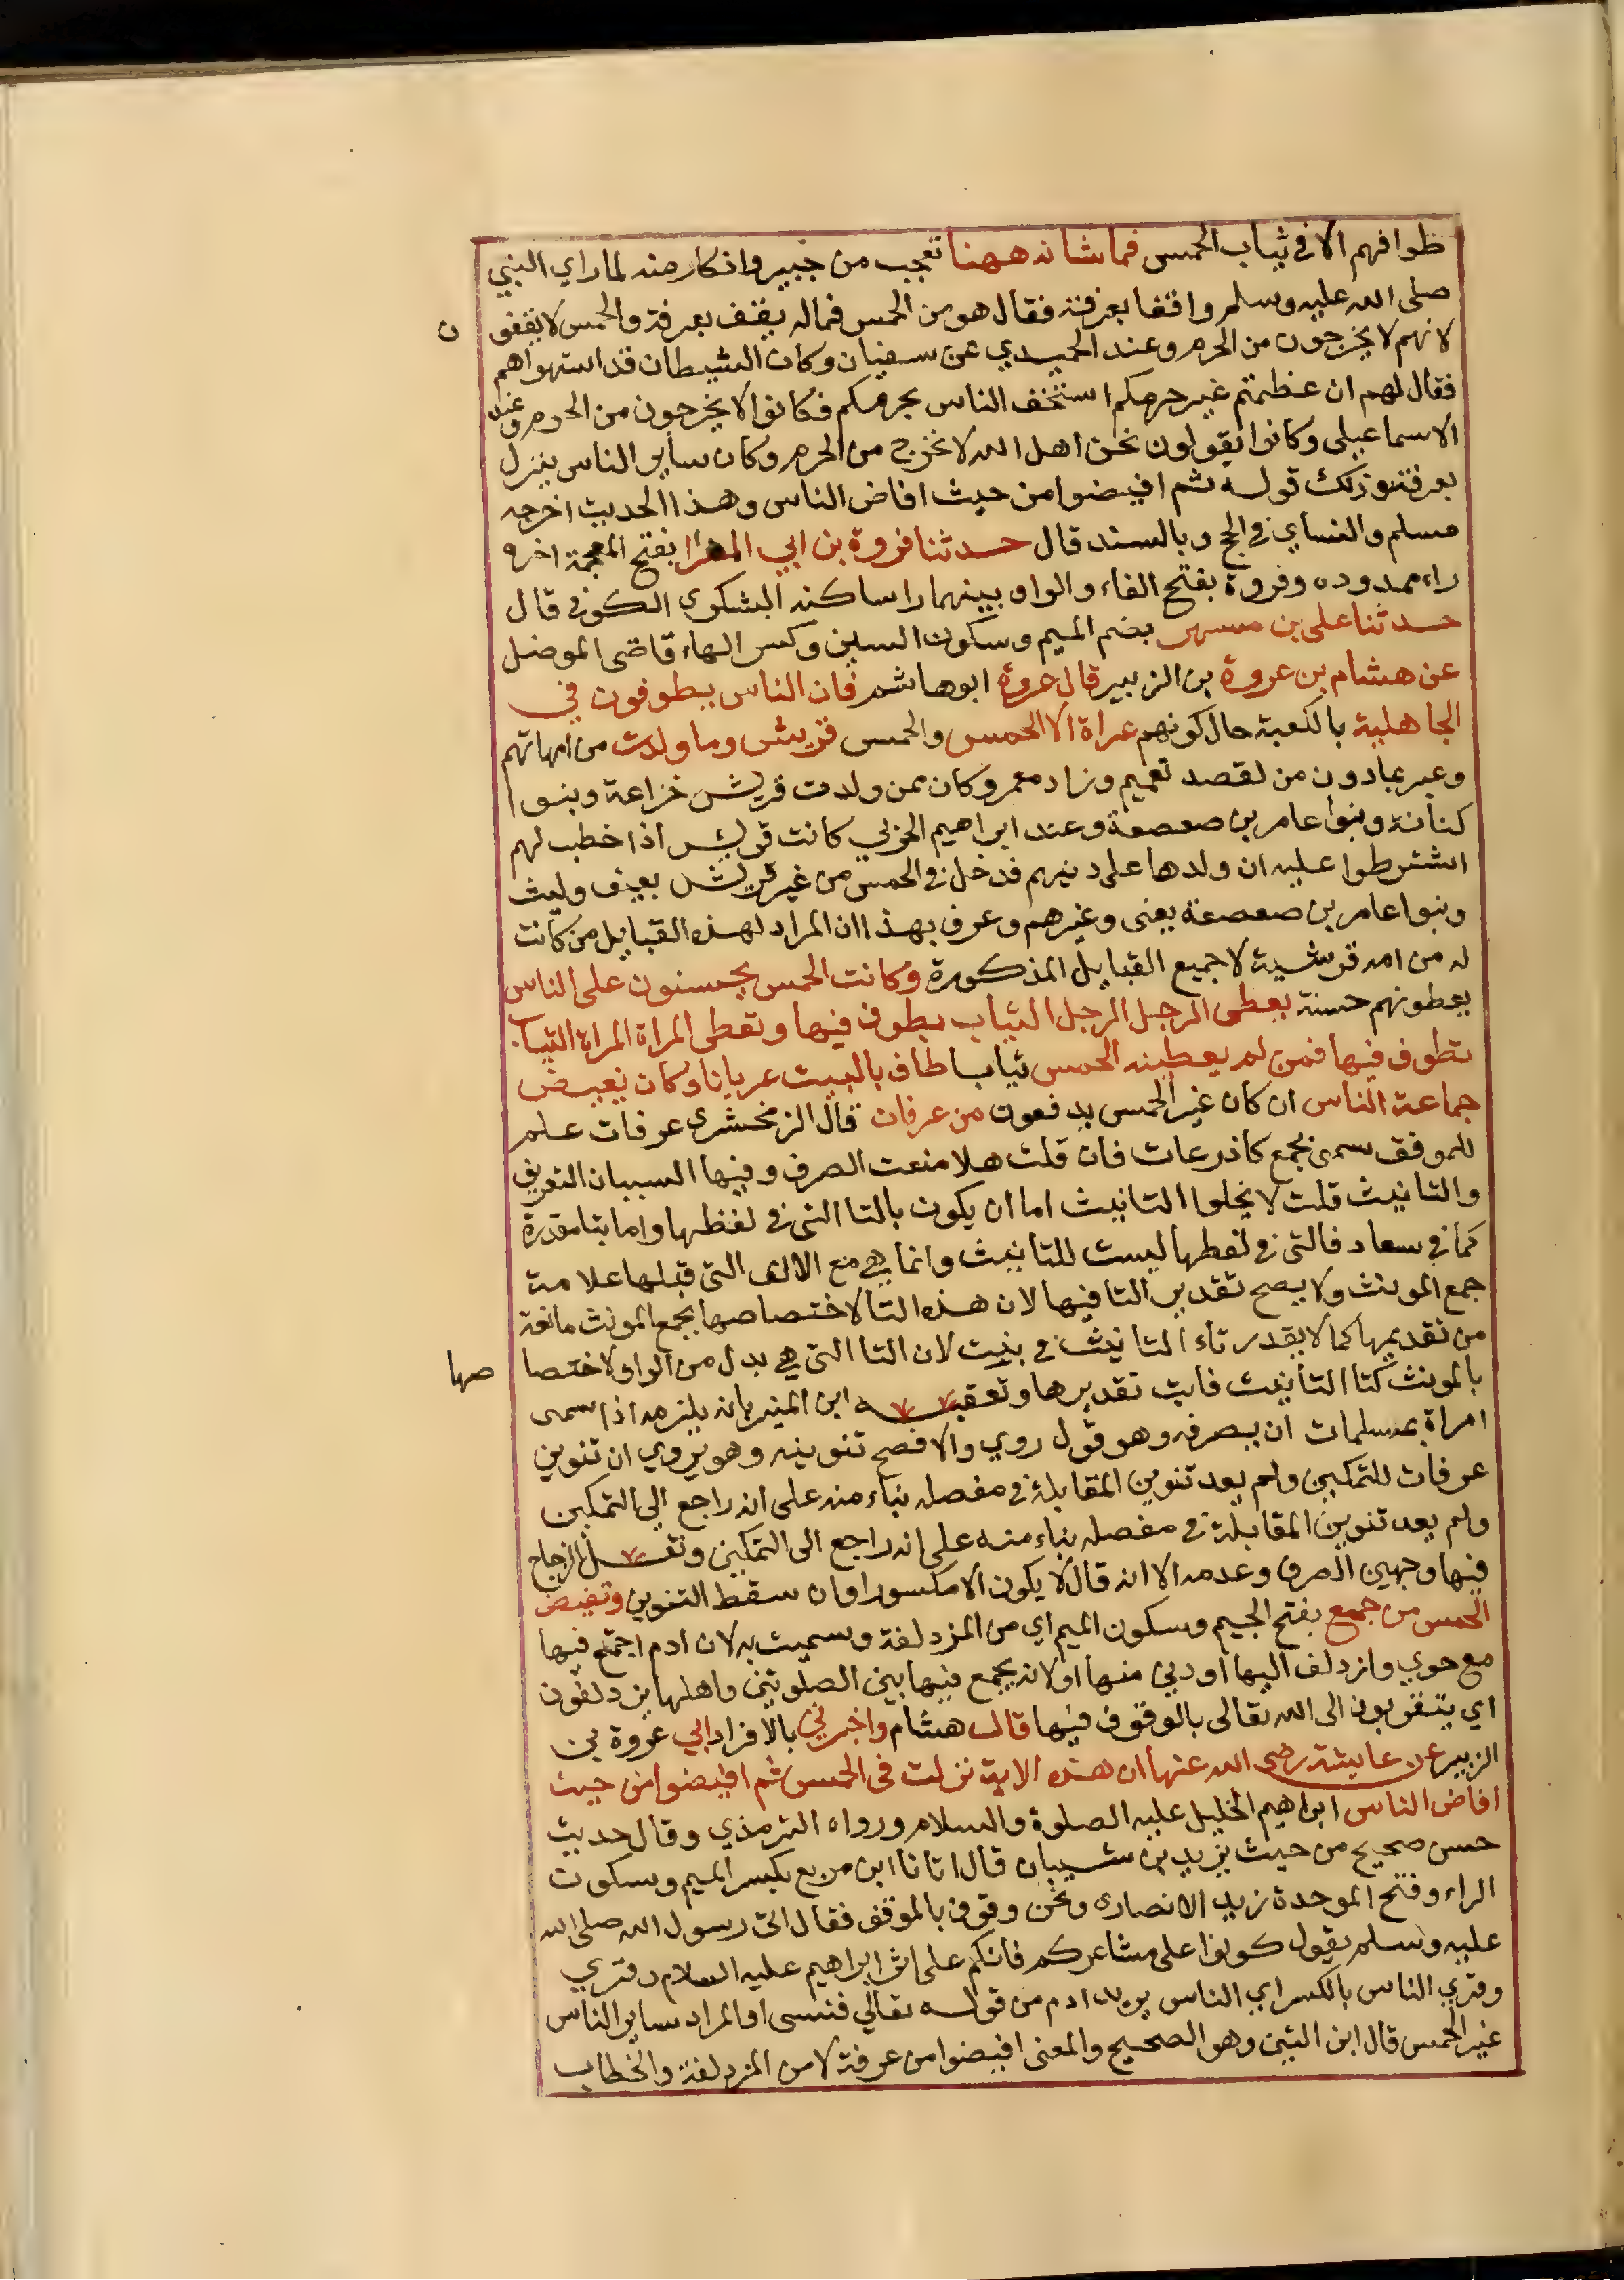 طوافهم الا في ثياب الحمس فما شانه ههنا تعجب من جبير وانكار منه لما راي النبي
صلى الله عليه وسلم واقفا بعرفة فقال هو من الحمس فماله يقف بعرفة والحمس لا يقفو ن
لانهم لا يخرجون من الحرم وعند الحميدي عن سفيان وكان الشيطان قد استهواهم
فقال لهم ان عظمتم غير حرمكم استخف الناس بحرمكم فكانوا لا يخرجون من الحرم وعند
الاسماعيلي وكانوا يقولون نحن اهل الله لا نخرج من الحرم وكان ساير الناس ينزل
بعرفة وذلك قوله ثم افيضوا من حيث افاض الناس وهذا الحديث اخرجه
مسلم والنساي في الحج وبالسند قال حدثنا فروة بن ابي المغرا بفتح المعجمة اخره
راء ممدوده وفروة بفتح الفاء والواو بينهما را ساكنه اليشكري الكوفي قال
حدثنا علي بن مسهر بضم الميم وسكون السين وكسر الهاء قاضي الموصل
عن هشام بن عروة بن الزبير قال عروة ابو هاشم فان الناس يطوفون في
الجاهلية بالكعبة حال كونهم عراة الا الحمس والحمس قريش وما ولدت من امهاتهم
وعبر بما دون من لقصد تعميم وزاد معمر وكان ممن ولدت قريش خزاعة وبنوا
كنانة وبنوا عامر بن صعصعة وعند ابراهيم الحربي كانت قريش اذا خطب لهم
اشترطوا عليه ان ولدها على دينهم فدخل في الحمس من غير قريش بعيف وليث
وبنوا عامر بن صعصعة يعنى وغيرهم وعرف بهذا ان المراد لهذه القبايل من كانت
له من امه قرشية لا جميع القبايل المذكورة وكانت الحمس يحسنون على الناس
يعطونهم حسنة يعطي الرجل الرجل الثياب يطوف فيها وتعطى المراة المراة الثياب
تطوف فيها فمن لم يعطينه الحمس ثيابا طاف بالبيت عريانا وكان يفيض
جماعة الناس ان كان غير الحمس يدفعون من عرفات قال الزمخشري عرفات علم
للموقف سمى بجمع كاذرعات فان قلت هلا منعت الصرف وفيها السببان التعريف
والتانيث قلت لا يخلوا التانيث اما ان يكون بالتا التي في لفظها واما بتا مقدرة
كما في سعاد فالتى في لفظها ليست للتانيث وانما هي مع الالف التي قبلها علامة
جمع المونث ولا يصح تقدير التا فيها لان هذه التا لاختصاصها بجمع المونث مانعة
من تقديرها كما لا يقدر تاء التانيث في بنت لان التا التي هي بدل من الواو لاختصا صها
بالمونث كتا التأنيث فابت تقديرها وتعقبه ابن المنير بانه يلزمه اذا سمى
امراة بمسلمات ان يصرفه وهو قول روي والافصح تنوينه وهو يروي ان تنوين
عرفات للتمكين ولم يعد تنوين المقابلة في مفصله بناء منه على انه راجع الي التمكين
ولم يعد تنوين المقابلة في مفصله بناء منه على انه راجع الى التمكين ونقل الزجاج
فيها وجهين الصرف وعدمه الا انه قال لا يكون الا مكسورا وان سقط التنوين وتفيض
الحمس من جمع بفتح الجيم وسكون الميم اي من المزدلفة وسميت به لان ادم اجتمع فيها
مع حوي وازدلف اليها او دني منها او لانه يجمع فيها بين الصلوتين واهلها يزدلفون
اي يتقربون الى الله تعالى بالوقوف فيها قال هشام واخبرني بالافراد ابي عروة بن
الزبير عن عايشة رضى الله عنها ان هذه الاية نزلت فى الحمس ثم افيضوا من حيث
افاض الناس ابراهيم الخليل عليه الصلوة والسلام ورواه الترمذي وقال حديث
حسن صحيح من حيث يزيد بن شيبان قال اتانا ابن مربع بكسر الميم وسكون
الراء وفتح الموحدة زيد الانصاري ونحن وقوف بالموقف فقال اني رسول الله صلى الله
عليه وسلم يقول كونوا على مشاعركم فانكم على اثر ابراهيم عليه السلام وقري
وقري الناس بالكسر اي الناس يريد ادم من قوله تعالي فنسى او المراد ساير الناس
غير الحمس قال ابن التين وهو الصحيح والمعنى افيضوا من عرفة لا من المزدلفة والخطاب